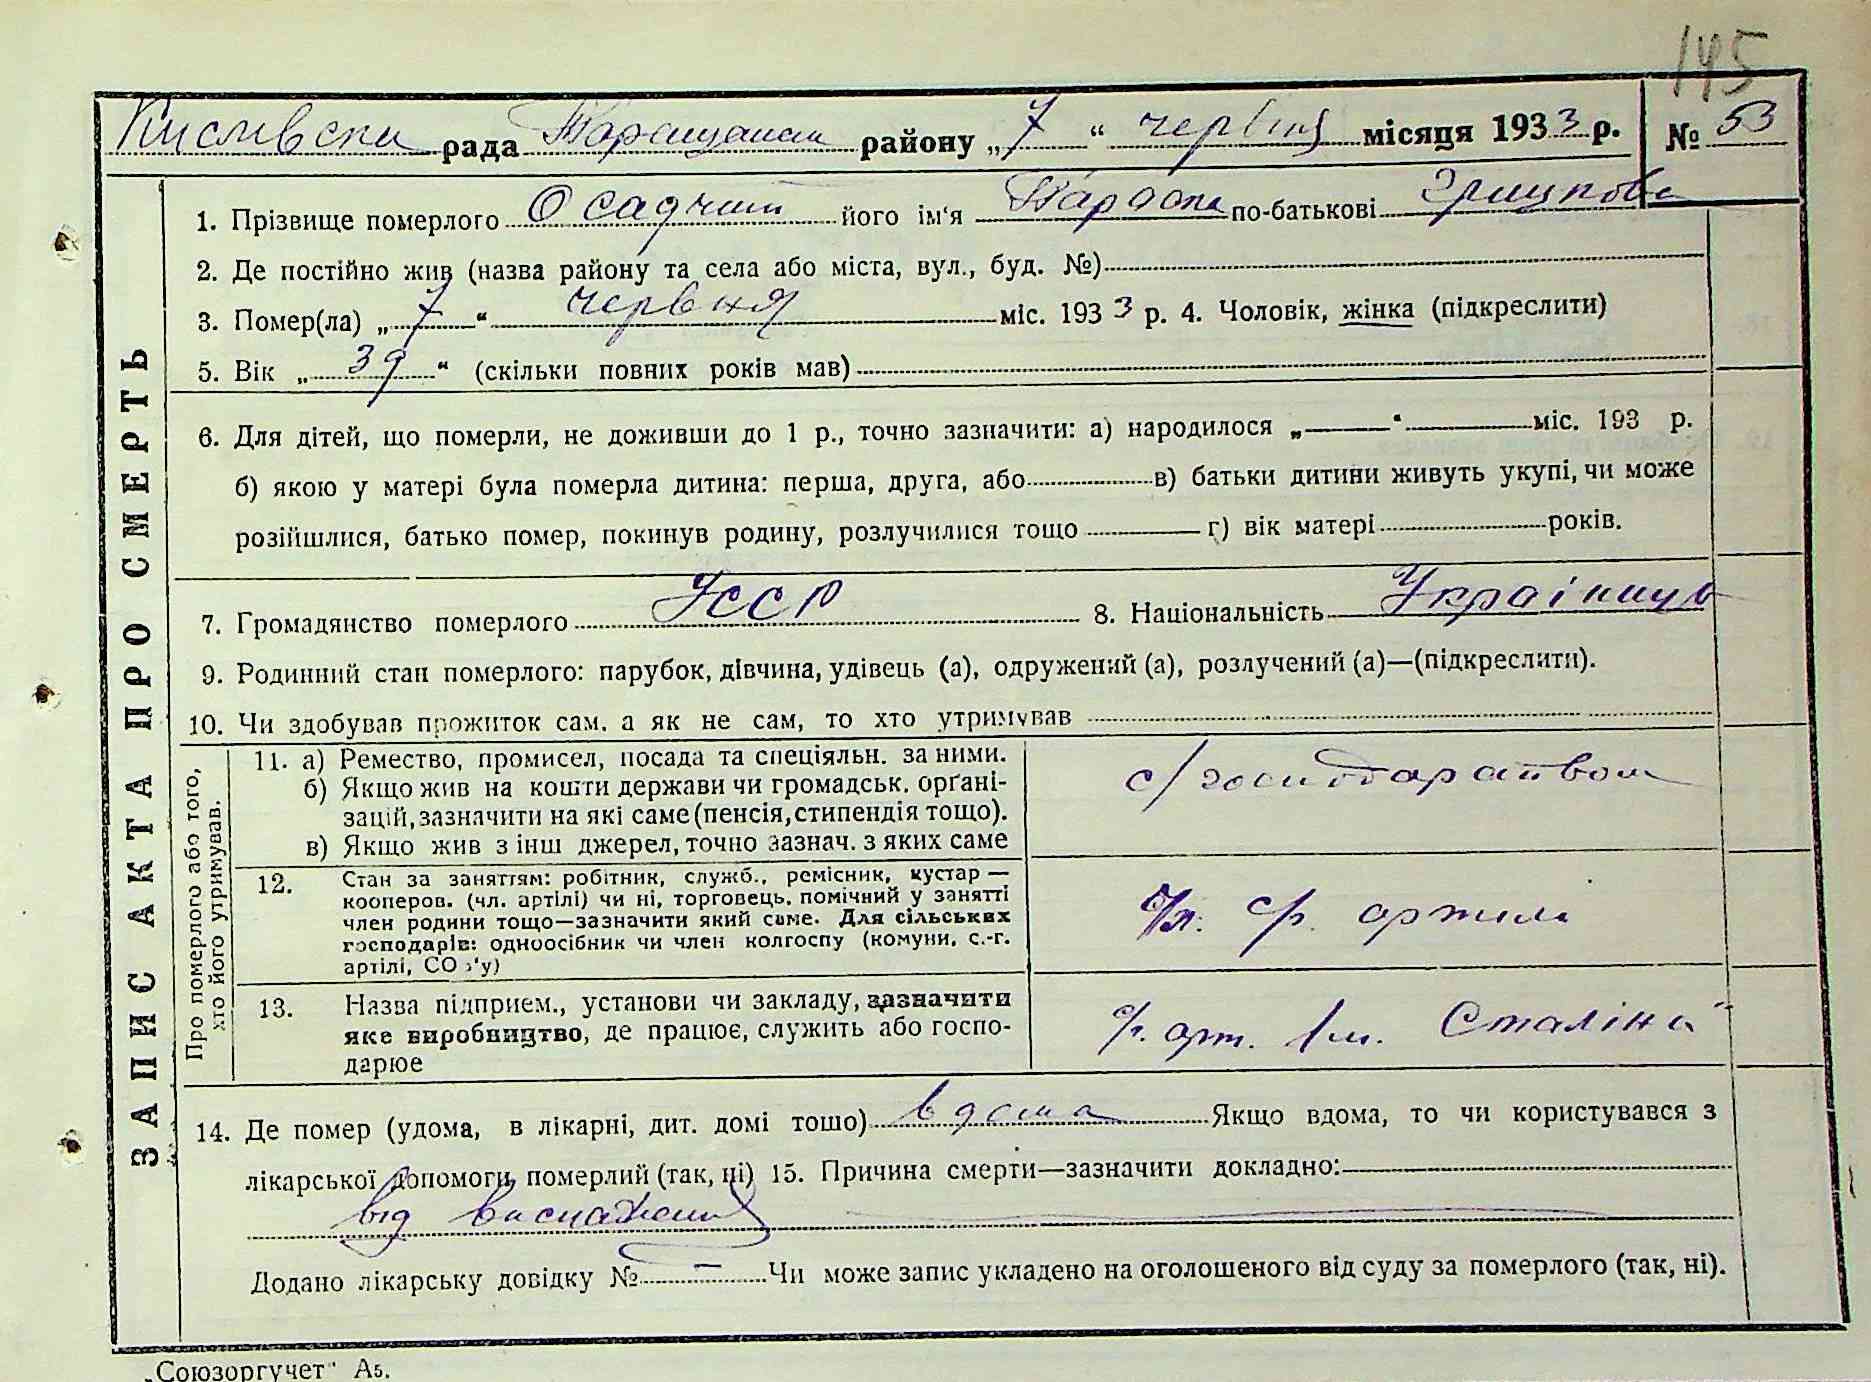 145
Кислівска рада Таращанск району „7“ червня місяця 1933 р. № 53
ЗАПИС АКТА ПРО СМЕРТЬ
1. Прізвище померлого Осадчий його ім'я по-батькові
2. Де постійно жив (назва району та села або міста, вул., буд. №)
3. Помер(ла) „7“ червня міс. 1933 р. 4. Чоловік, жінка (підкреслити)
5. Вік „39“ (скільки повних років мав)
6. Для дітей, що померли, не доживши до 1 р., точно зазначити: а) народилося „——“ —— міс. 193 р.
б) якою у матері була померла дитина: перша, друга, або в) батьки дитини живуть укупі, чи може
розійшлися, батько помер, покинув родину, розлучилися тощо г) вік матері років.
7. Громадянство померлого УССР 8. Національність
9. Родинний стан померлого: парубок, дівчина, удівець (а), одружений (а), розлучений (а)—(підкреслити).
10. Чи здобував прожиток сам. а як не сам, то хто утримував
Про померлого або того,
хто його утримував.
11. а) Ремество, промисел, посада та спеціяльн. за ними.
б) Якщо жив на кошти держави чи громадськ. орґані-
зацій, зазначити на які саме (пенсія, стипендія тощо).
в) Якщо жив з інш джерел, точно зазнач. з яких саме
с/господарством
12. Стан за заняттям: робітник, служб., ремісник, кустар —
кооперов. (чл. артілі) чи ні, торговець, помічний у занятті
член родини тощо—зазначити який саме. Для сільських
господарів: одноосібник чи член колгоспу (комуни, с.-г.
артілі, СО з'у)
Чл. с/г. артили
13. Назва підприєм., установи чи закладу, зазначити
яке виробництво, де працює, служить або госпо-
дарює
с/г. арт. Ім. Сталіна
14. Де помер (удома, в лікарні, дит. домі тошо) вдома Якщо вдома, то чи користувався з
лікарської допомоги, померлий (так, ні) 15. Причина смерти—зазначити докладно:
від виснаження
Додано лікарську довідку № — Чи може запис укладено на оголошеного від суду за померлого (так, ні).
„Союзоргучет“ А5.